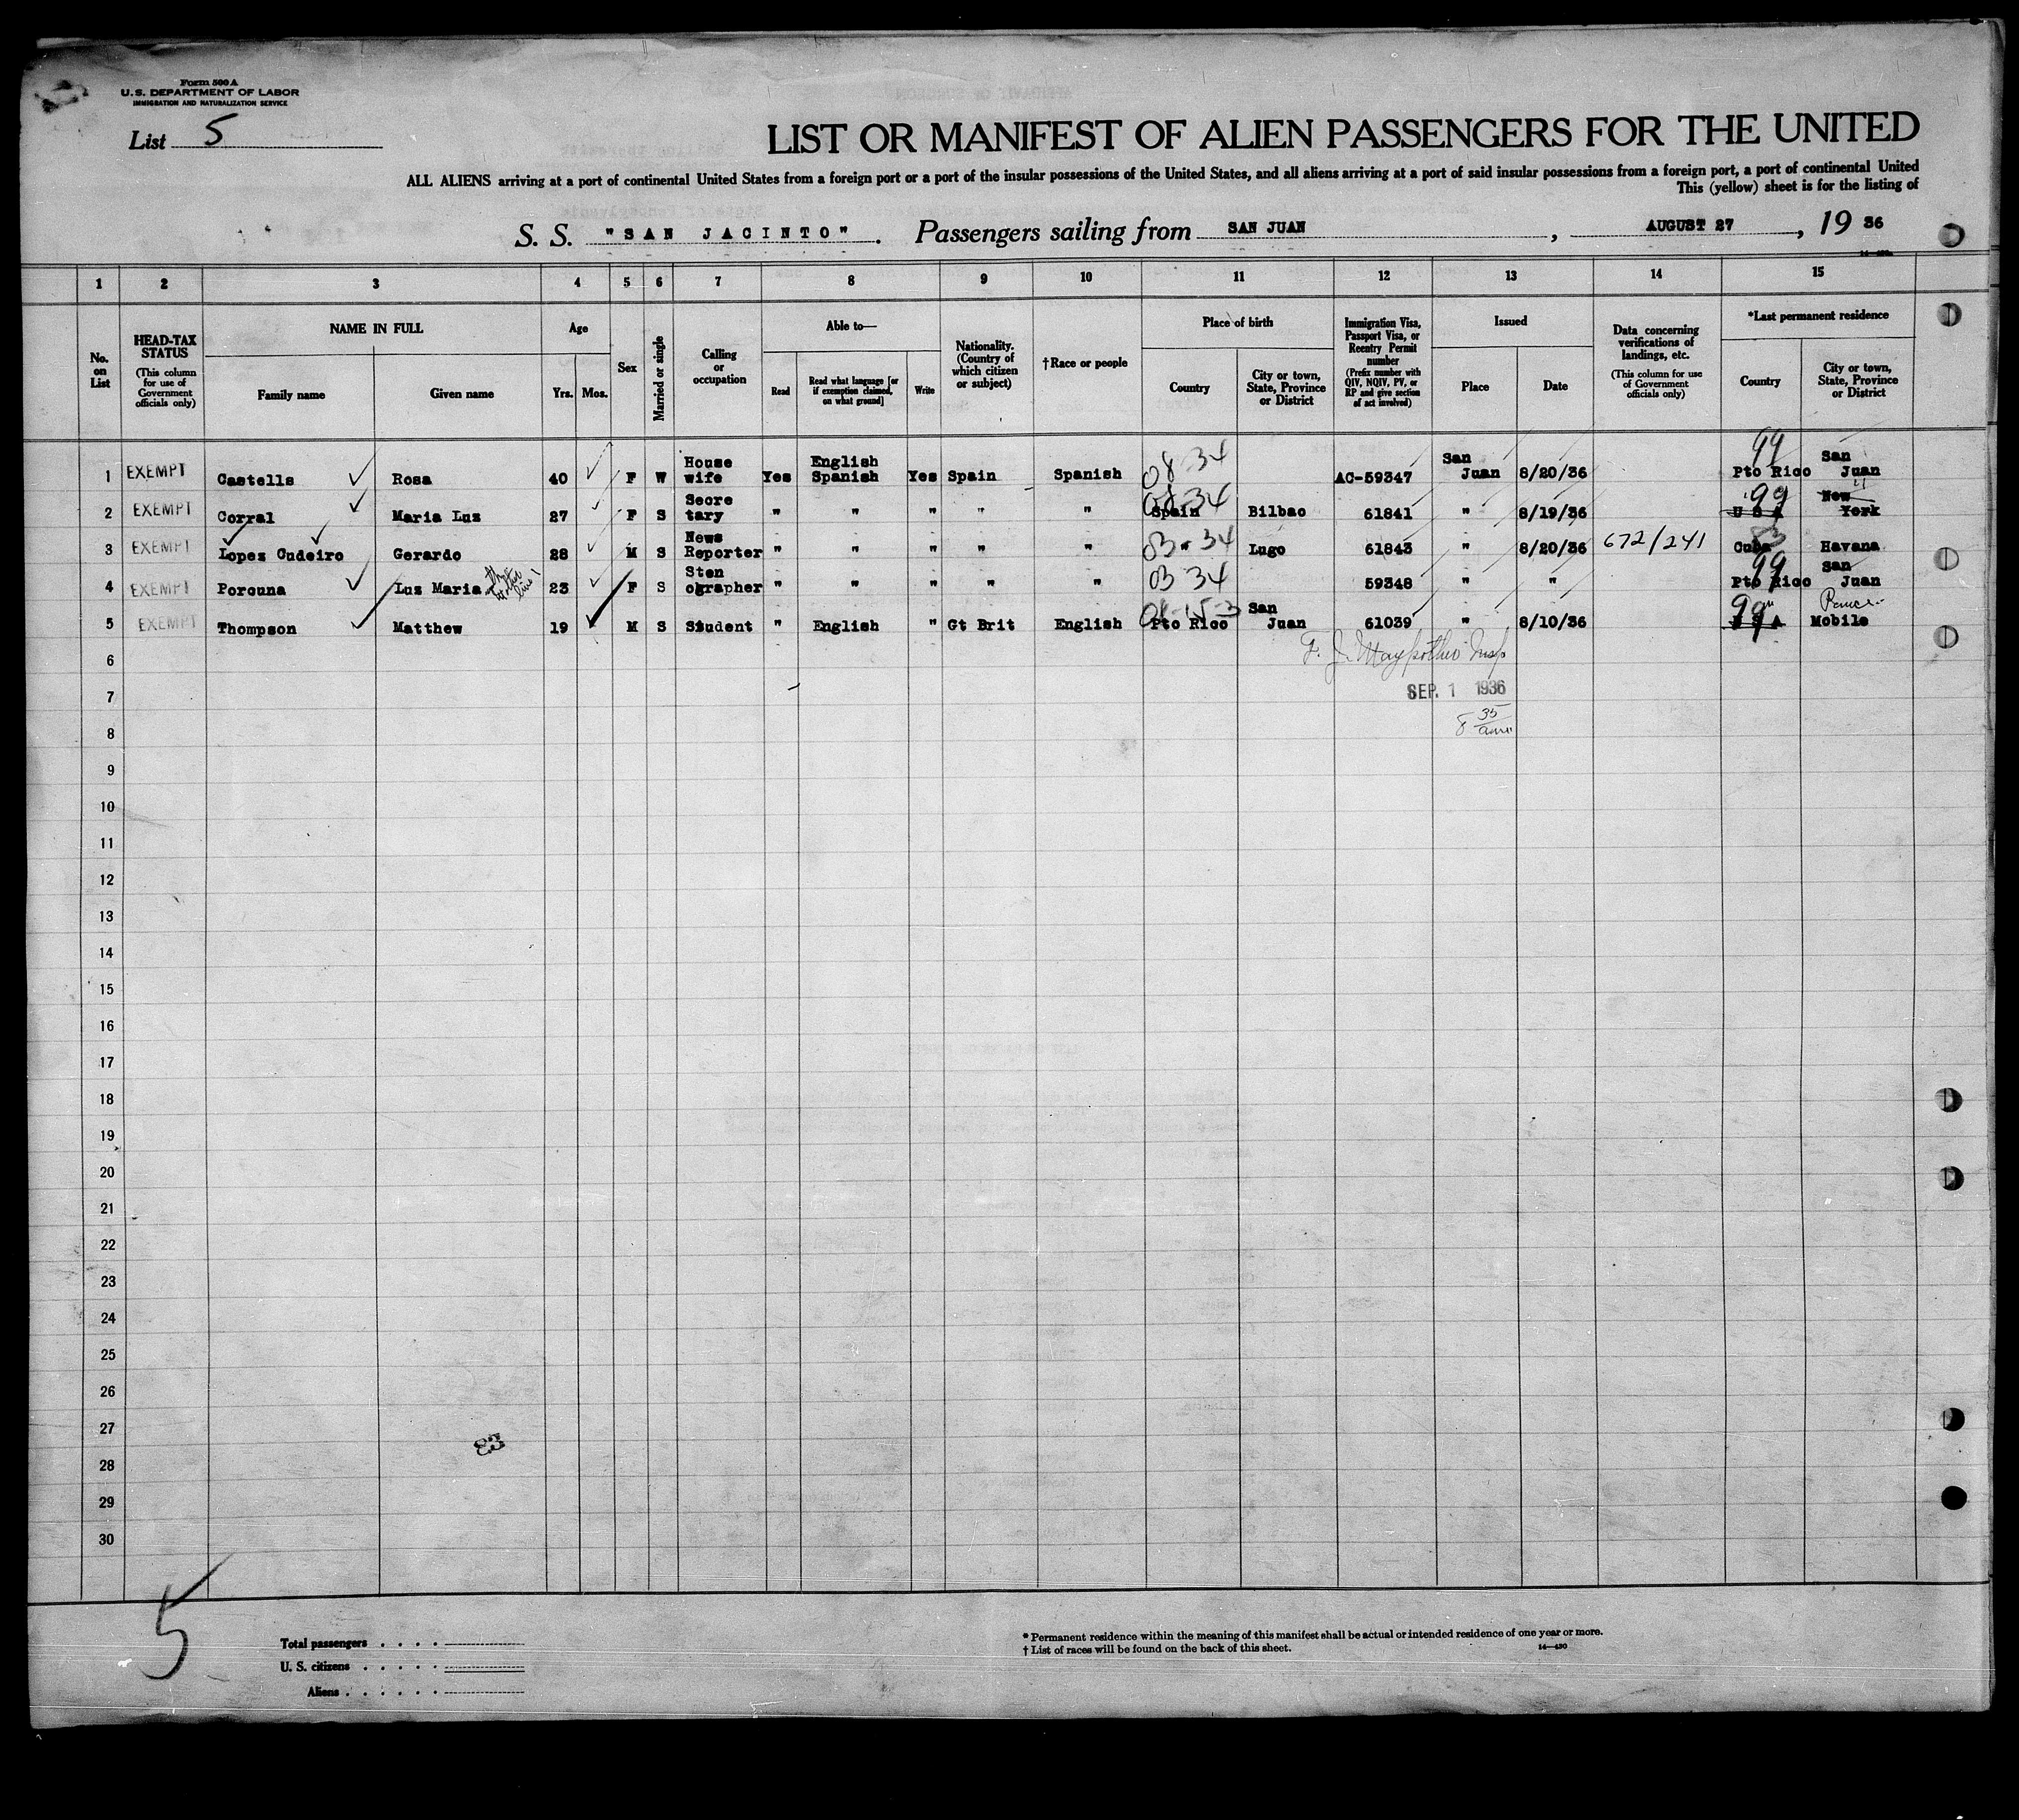 Form 500 A
U.S. DEPARTMENT OF LABOR
IMMIGRATION AND NATURALIZATION SERVICE
List 5
LIST OR MANIFEST OF ALIEN PASSENGERS FOR THE UNITED
ALL ALIENS arriving at a port of continental United States from a foreign port or a port of the insular possessions of the United States, and all aliens arriving at a port of said insular possessions from a foreign port, a port of continental United
This (yellow) sheet is for the listing of
S. S. "SAN JACINTO". Passengers sailing from SAN JUAN, AUGUST 27, 19 36
1 2 3 4 5 6 7 8 9 10 11 12 13 14 15
No. on List
HEAD-TAX STATUS (This column for use of Government officials only)
NAME IN FULL
Family name
Given name
Age
Yrs.
Mos.
Sex
Married or single
Calling or occupation
Able to—
Read
Read what language [or if exemption claimed, on what ground]
Write
Nationality. (Country of which citizen or subject)
†Race or people
Place of birth
Country
City or town, State, Province or District
Immigration Visa, Passport Visa, or Reentry Permit number (Prefix number with QIV, NQIV, PV, or RP and give section of act involved)
Issued
Place
Date
Data concerning verifications of landings, etc. (This column for use of Government officials only)
*Last permanent residence
Country
City or town, State, Province or District
1 EXEMPT Castells Rosa 40 F W House wife Yes English Spanish Yes Spain Spanish 08 34 AC-59347 San Juan 8/20/36 99 Pto Rico San Juan
2 EXEMPT Corral Maria Luz 27 F S Secre tary " " " " " 08-34 Spain Bilbao 61841 " 8/19/36 99 U S A New York
3 EXEMPT Lopez Cudeiro Gerardo 28 M S News Reporter " " " " " 03-34 Lugo 61843 " 8/20/36 672/241 83 Cuba Havana
4 EXEMPT Porcuna Luz Maria 23 F S Sten ographer " " " " " 03 34 59348 " " 99 Pto Rico San Juan
5 EXEMPT Thompson Matthew 19 M S Student " English " Gt Brit English Pto Rico San Juan 61039 " 8/10/36 99 U S A Ponce Mobile
6
SEP. 1 1936
7
8 35 am
8
9
10
11
12
13
14
15
16
17
18
19
20
21
22
23
24
25
26
27
83
28
29
30
5
Total passengers . . . .
U. S. citizens . . . . .
Aliens . . . . . .
* Permanent residence within the meaning of this manifest shall be actual or intended residence of one year or more.
† List of races will be found on the back of this sheet.
14—430